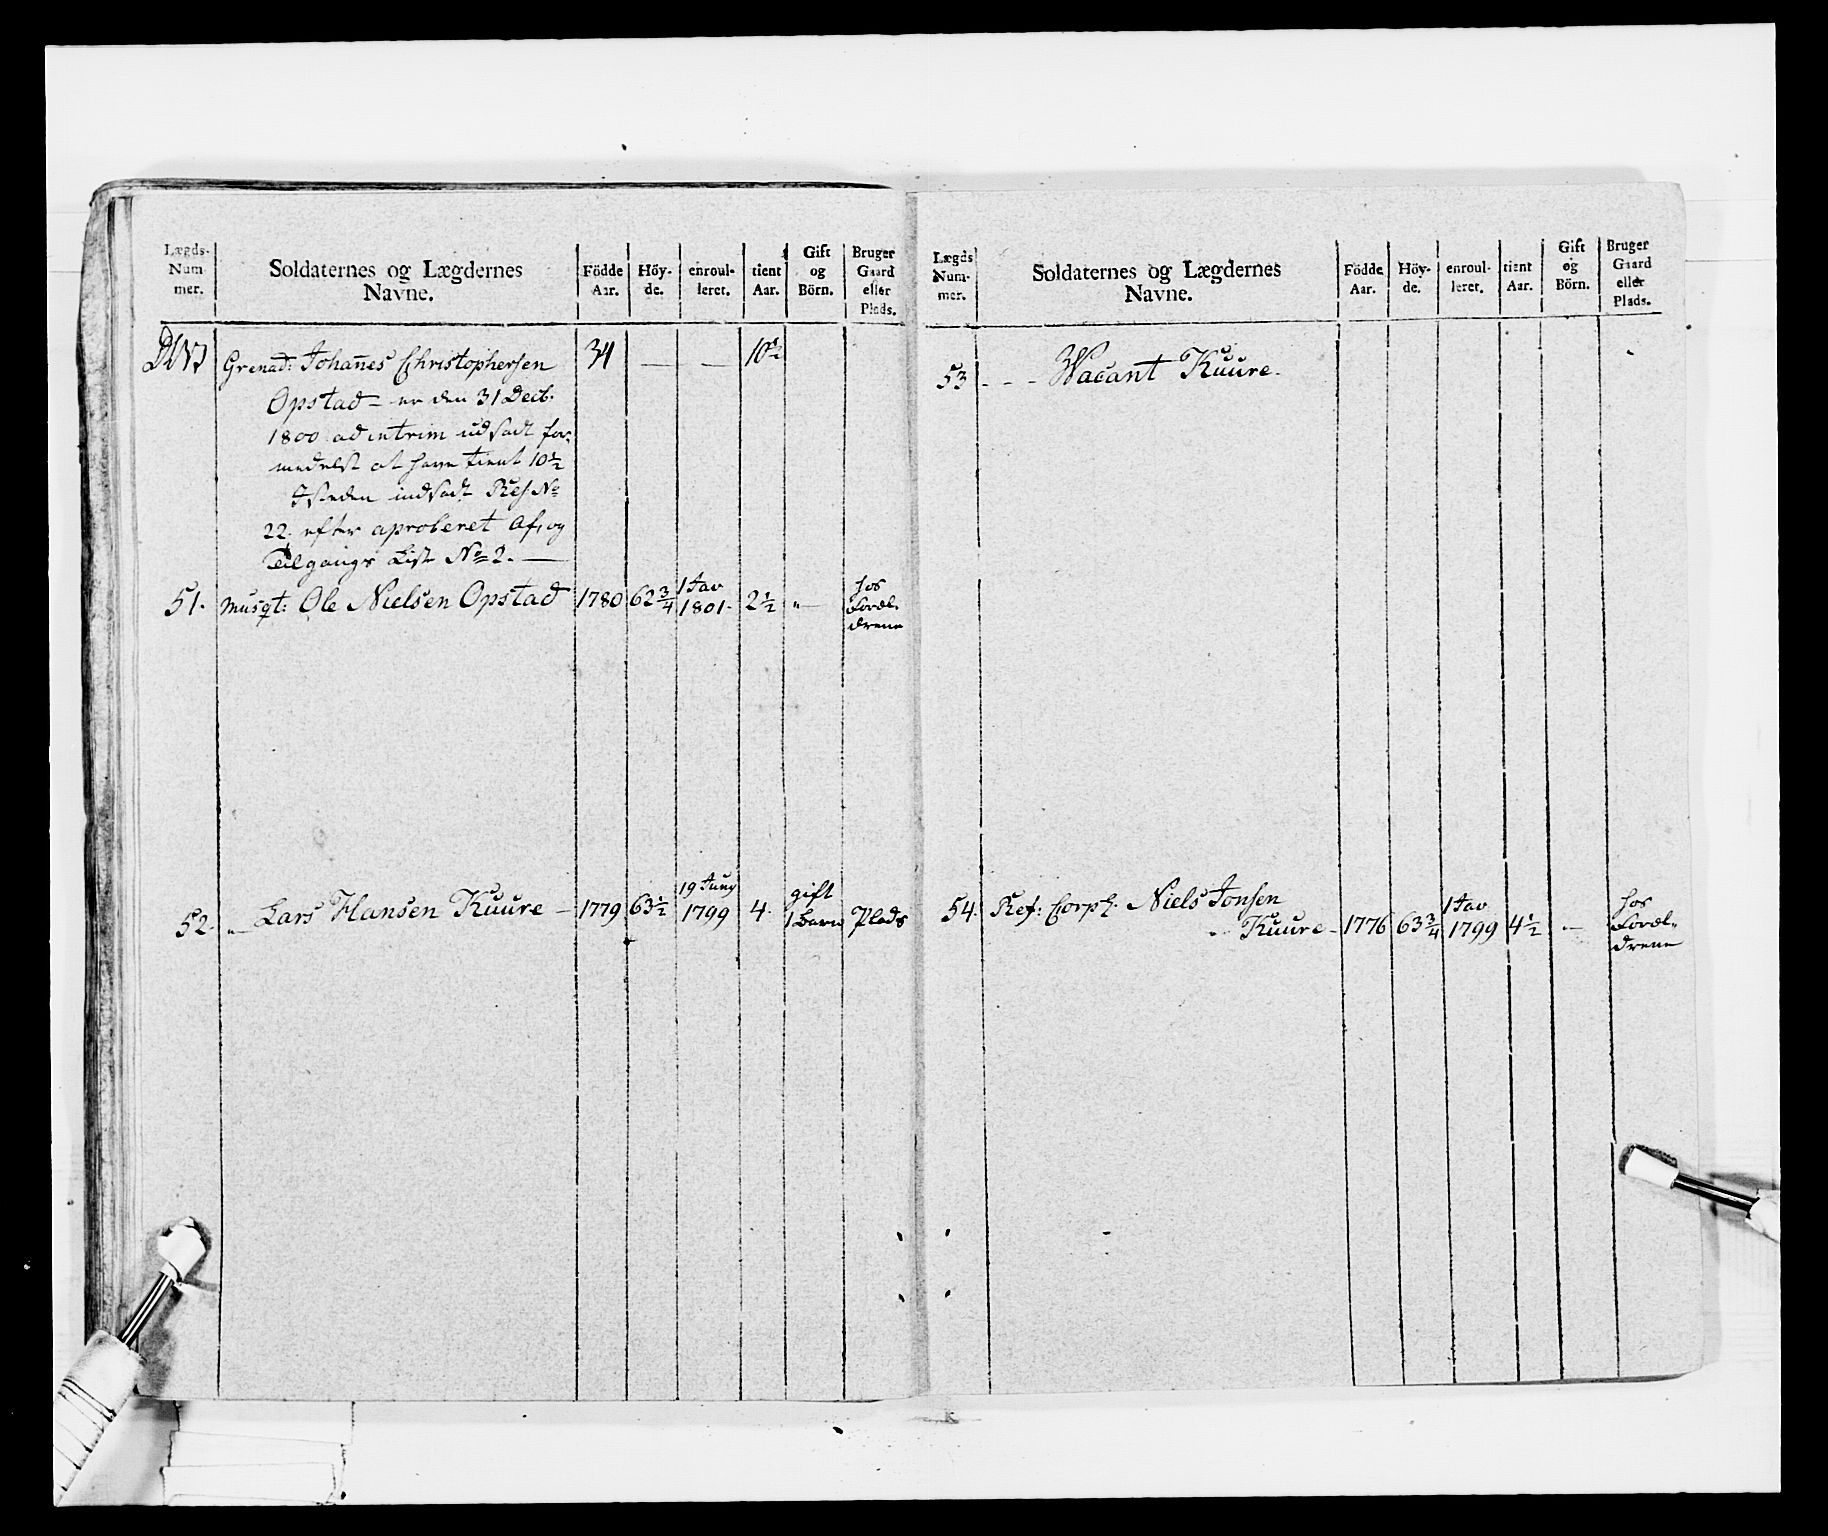 Lægds-
Num
mer.
Soldaternes og Lægdernes
Navne.
Födde
Aar.
Höy-
de.
enroul-
leret.
tient
Aar.
Gift
og
Börn.
Bruger
Gaard
eller
Plads.
Grenad: Johan̄es Christophersen 34 — — 10½
Opstad — er den 31 Decb:
1800 ad intrim udsadt for,
medelst at have tient 10½
Isteden indsadt Res No
22. efter aproberet Af, og
Tilgangs List No 2. —
51. Musqt: Ole Nielsen Opstad 1780 62¾ 1 Jav 1801. 2½ „— hos
Foræl-
drene
52. „— Lars Hansen Kuure — 1779 63½ 19 Juny 1799 4. gift
1 Barn Plads
Lægds
Num-
mer.
Soldaternes og Lægdernes
Navne.
Födde
Aar.
Höy-
de.
enroul-
leret.
tient
Aar.
Gift
og
Börn.
Bruger
Gaard
eller
Plads.
53 - - - Wacant Kuure.
54. Ref: Corp: Niels Jonsen
Kuure - 1776 63¾ 1 Jav 1799 4½ „— hos
Foræl-
drene